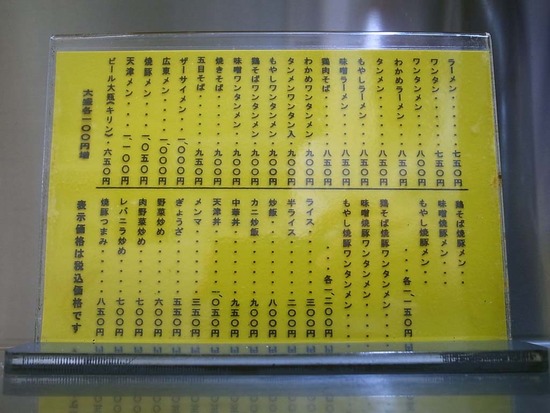 ラーメン．．．．．七五〇円
ワンタン．．．．．七五〇円
ワンタンメン．．．八〇〇円
わかめラーメン．．八五〇円
タンメン．．．．．八〇〇円
もやしラーメン．．八五〇円
味噌ラーメン．．．八五〇円
鶏肉そば．．．．．八五〇円
わかめワンタンメン．九〇〇円
タンメンワンタン入．九〇〇円
もやしワンタンメン．九〇〇円
鶏そばワンタンメン．九〇〇円
味噌ワンタンメン．．九〇〇円
焼きそば．．．．．九〇〇円
五目そば．．．．．九五〇円
ザーサイメン．．一、〇〇〇円
広東メン．．．．一、〇〇〇円
焼豚メン．．．．一、〇五〇円
天津メン．．．．一、一〇〇円
ビール大瓶(キリン)．六五〇円
大盛各一〇〇円増
鶏そば焼豚メン．．
味噌焼豚メン．．．
もやし焼豚メン．．
各一、一五〇円
鶏そば焼豚ワンタンメン．．
味噌焼豚ワンタンメン．．．
もやし焼豚ワンタンメン．．
各一、二〇〇円
ライス．．．．．．三〇〇円
半ライス．．．．．二〇〇円
炒飯．．．．．．．八〇〇円
カニ炒飯．．．．．九〇〇円
中華丼．．．．．．九五〇円
天津丼．．．．．一、〇五〇円
メンマ．．．．．．三五〇円
ぎょうざ．．．．．五五〇円
野菜炒め．．．．．六〇〇円
肉野菜炒め．．．．七〇〇円
レバニラ炒め．．．七〇〇円
焼豚つまみ．．．．八五〇円
表示価格は税込価格です